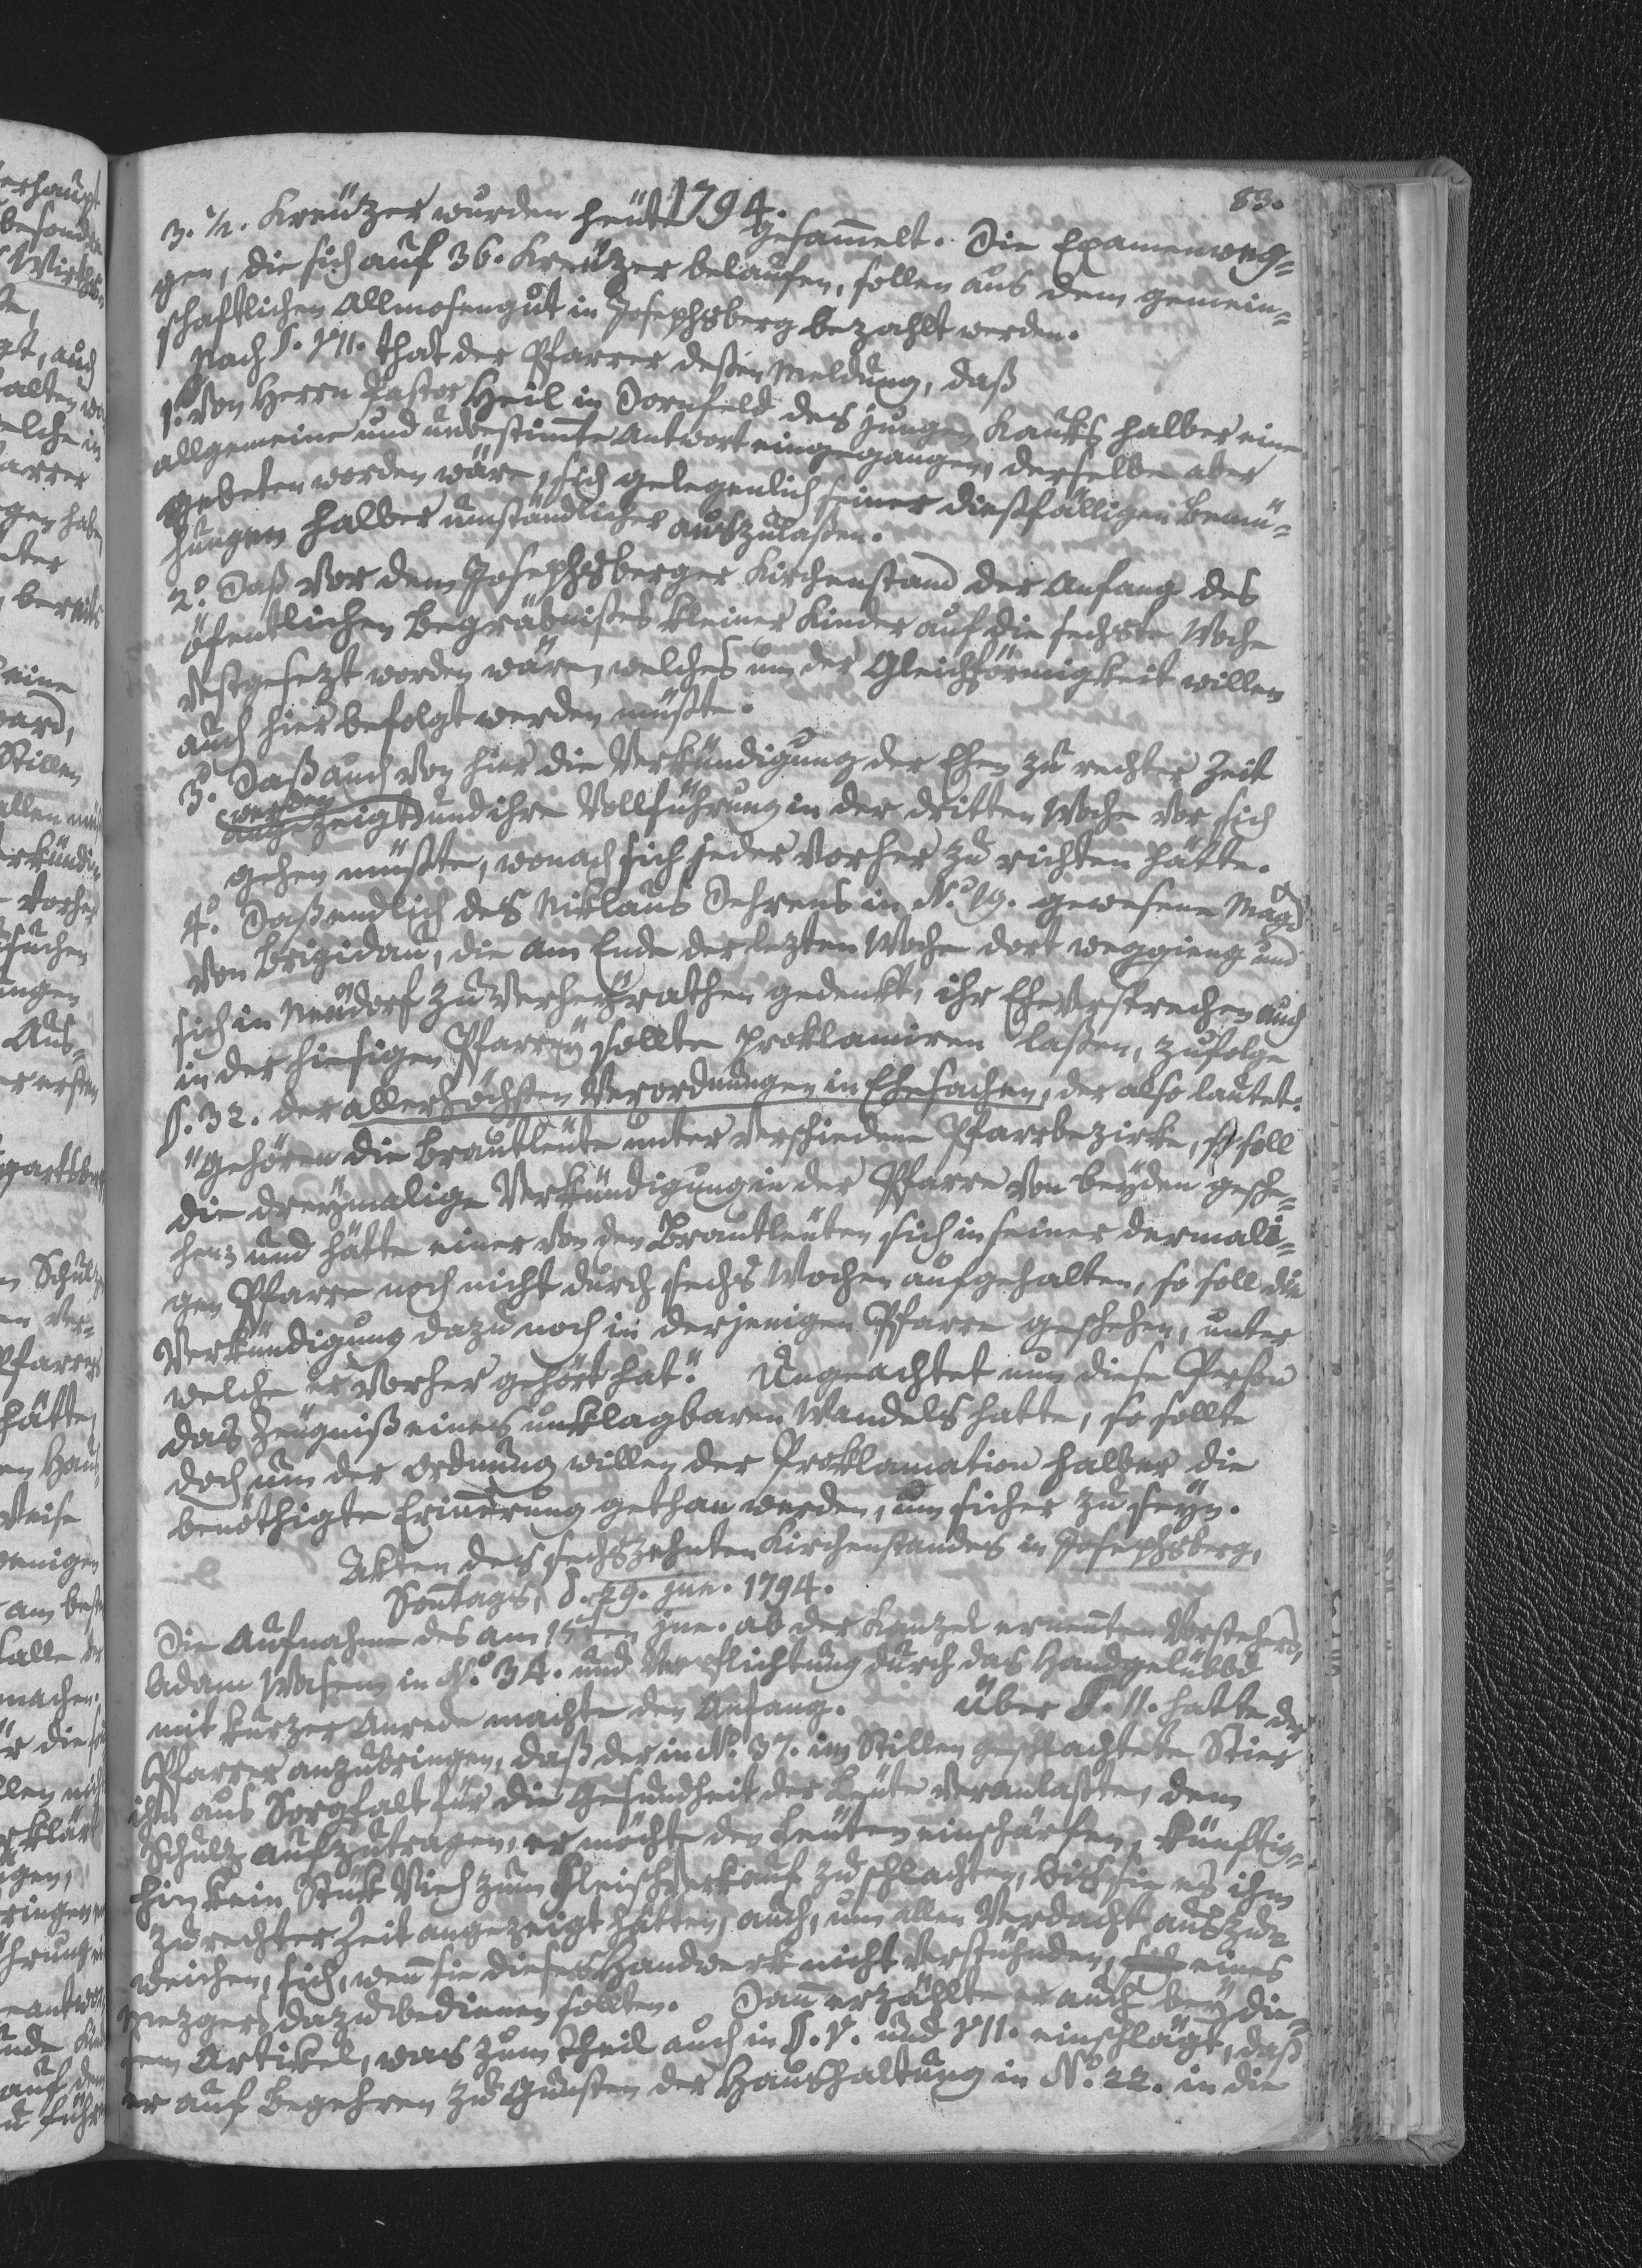 1794.
83.
3. ½. Kreützer wurden heüte gesam̄elt. Die Examenweg-
gen, die sich auf 36. Kreützer belaufen, sollen aus dem gemein-
schaftlichen Allmosengut in Josephsberg bezahlt werden.
Nach §. VII. that der Pfarrer deßen Meldung, daß
1.° Von Herrn Pastor Heil in Dornfeld des jungen Kauks halber eine
allgemeine und unbestim̄te Antwort eingegangen, derselbe aber
gebeten worden wäre, sich gelegenlich seiner dießfälligen Bemü-
hungen halber umständlicher auszulaßen.
2.° Daß vor dem Josephsberger Kirchenstand der Anfang des
öfentlichen Begräbnißes kleiner Kinder auf die sechste Woche
vestgesezt worden wäre, welches um der Gleichförmigkeit willen
auch hier befolgt werden müßte.
3.° Daß auch von hier die Verkündigung der Ehen zu rechter Zeit
werden
angezeigt und ihre Vollführung in der dritten Woche vor sich
gehen müßte, wonach sich jeder vorher zu richten hätte.
4.° Daß endlich des Niklaus Dehrens in N.° 19. gewesene Magd
von Brigidau, die am Ende der lezten Woche dort weggieng und
sich in Neudorf zu verheyrathen gedenkt, ihr Eheversprechen auch
in der hiesigen Pfarrey sollte proklamiren laßen, zufolge
§. 32. der allerhöchsten Verordnungen in Ehesachen, der also lautet:
"Gehören die Brautleute unter verschiedene Pfarrbezirke, so soll
die dreymalige Verkündigung in der Pfarre von beyden gesche-
hen; und hätte einer von den Brautleuten sich in seiner dermali-
gen Pfarre noch nicht durch sechs Wochen aufgehalten, so soll die
Verkündigung dazu noch in derjenigen Pfarre geschehen, unter
welche er vorher gehört hat." Ungeachtet nun diese Person
das Zeugniß eines unklagbaren Wandels hatte, so sollte
doch um der Ordnung willen der Proklamation halber die
benöthigte Erin̄erung gethan werden, um sicher zu seyn.
Akten des sechszehnten Kirchenstandes in Josephsberg,
Son̄tags, d. 29. Jun. 1794.
Die Aufnahme des am 15ten Jun. ab der Kanzel ernen̄ten Vorstehers,
Adam Wasem in N.° 34. und Verpflichtung durch das Handgelübbd
mit kurzer Anrede machte den Anfang. Über §. II. hatte der
Pfarrer anzubringen, daß der in N.° 37. im Stillen geschlachtete Stier
ihn aus Sorgfalt für die Gesundheit der Leute veranlaßte, dem
Schulz aufzutragen, er möchte den Leuten einschärfen, künftig-
hin kein Stük Vieh zum Fleischverkauf zu schlachten, bis sie es ihm
zu rechter Zeit angezeigt hätten, auch, um allen Verdacht auszu-
weichen, sich, wen̄ sie dieses Handwerk nicht verstühnden, eines
Mezgers dazu bedienen sollten. Dan̄ erzählte er auch bey die-
sem Artikel, was zum Theil auch in §. V. und VII. einschlägt, daß
er auf Begehren zu Gunsten der Haushaltung in N.° 22. in die